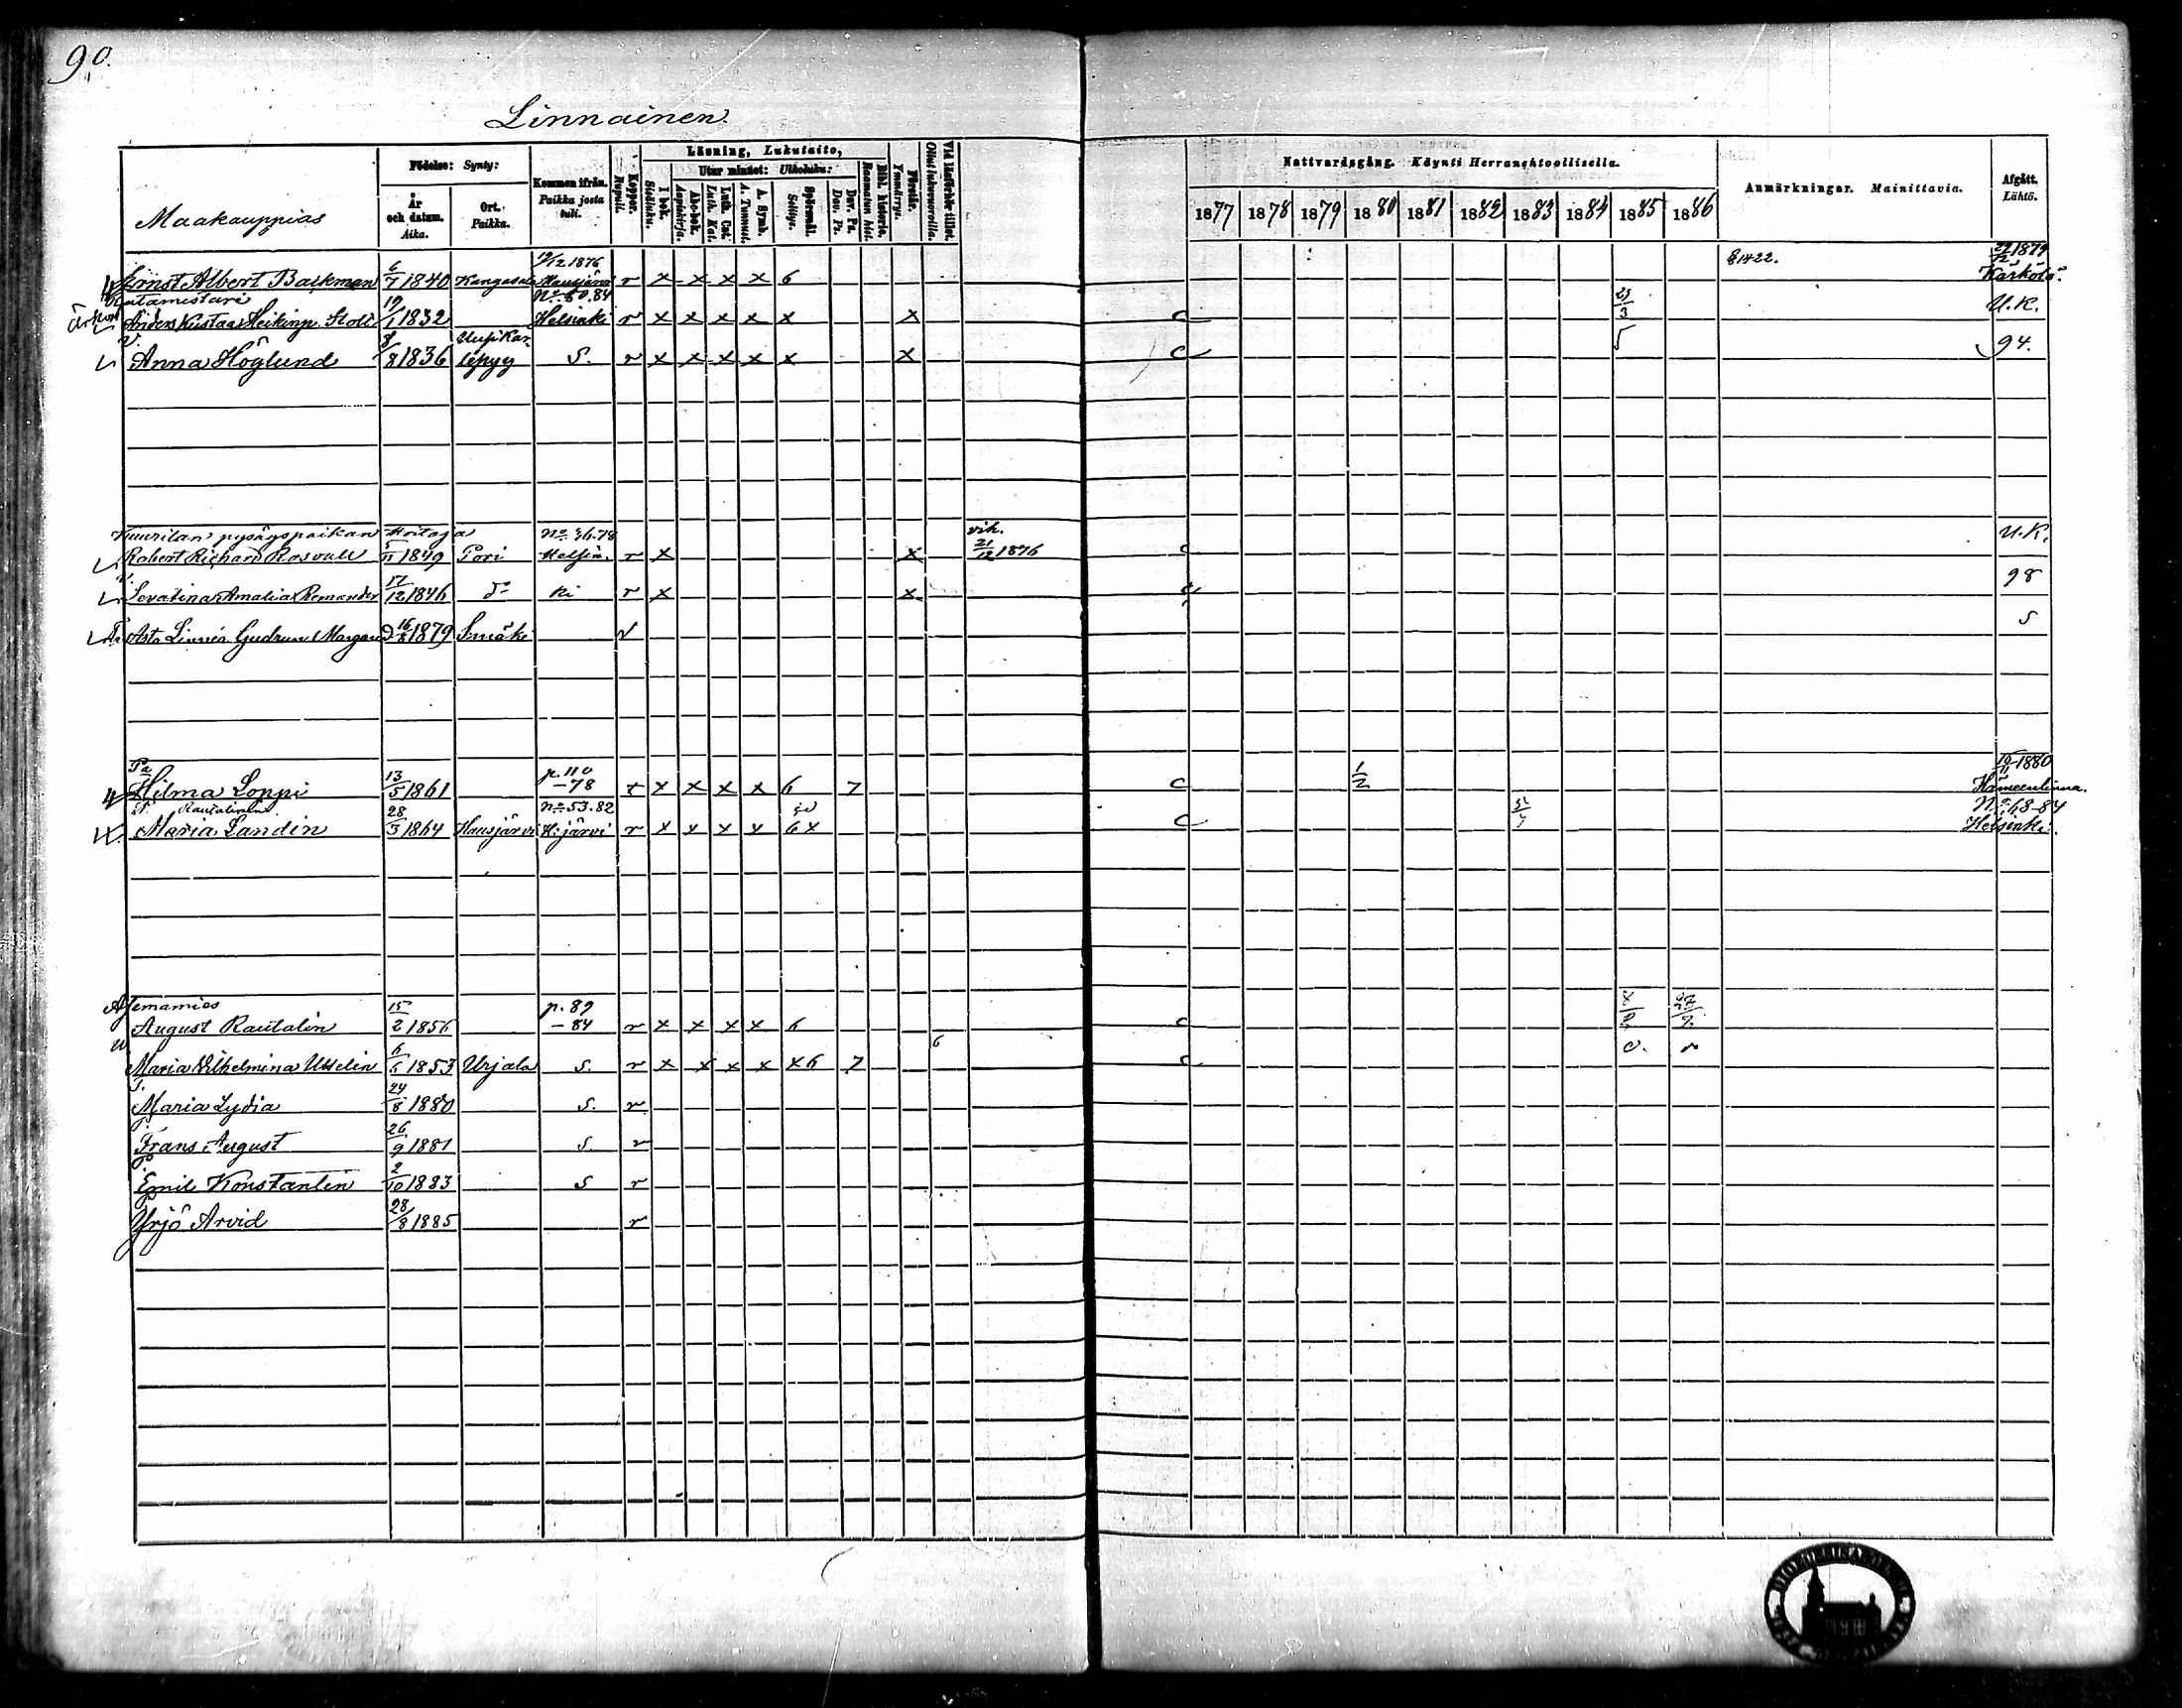 90.
Linnainen.
Maakauppias
Födelse: Synty:
År och datum. Aika.
Ort. Paikka.
Kommen ifrån. Paikka josta tuli.
Koppor. Rupuli.
Läsning, Lukutaito,
I bok. Sisäluku.
Utur minnet: Ulkoluku:
Abc-bok. Aapiskirja.
Luth. Cat. Luth. Kat.
A. Symb. A. Tunnust.
Spörsmål. Selitys.
Dav. Ps. Dav. Ps.
Bibl. historie. Raamatun hist.
Förstår. Ymmärrys.
Vid läsförhör tillst. Ollut lukuvuorolla.
Nattvardsgång. Käynti Herranehtoollisella.
1877 1878 1879 1880 1881 1882 1883 1884 1885 1886
Anmärkningar. Mainittavia.
Afgått. Lähtö.
Ernst Albert Backman 6/7 1840 Kangasala 19/12 1876 Hausjärvi r x x x x 6 § 1422. 1879 Kärkölä
Ratamestari
Anders Kustaa Heikinp. Stolt 19/1 1832 No 80.84 Helsinki r x x x x x x C 3 U.K.
v.
Anna Höglund 8/8 1836 Uusi Kaarlepyy S. r x x x x x x C 94.
Kuurilan pysäyspaikan Hoitaja
Robert Richard Rosvall 1849 Pori No 36.78 Helsinki r x x vih. 21/12 1876 C U.K.
v.
Amalia Remander 17/12 1846 r x x 98
Asta Linnéa Gudrun Margareta 16/8 1879 S:mäki
Pa
Hilma Loppi 13/5 1861 p. 110 -78 r x x x x 6 7 C 1/2 1880 Hämeenlinna.
P. Rautalinin
Maria Landin 28/3 1864 Hausjärvi No 53.82 H:järvi r x x x x 6 x C No 68-84 Helsinki.
Asemamies
August Rautalin 15/2 1856 p. 89 -84 r x x x x 6 C
Maria Vilhelmina Usselin 6/5 1853 Urjala S. r x x x x x 6 7 6 C
T.
Maria Lydia 24/8 1880 S. r
Frans August 26/9 1881 S. r
Emil Konstantin 2/10 1883 S r
Yrjö Arvid 28/8 1885 r